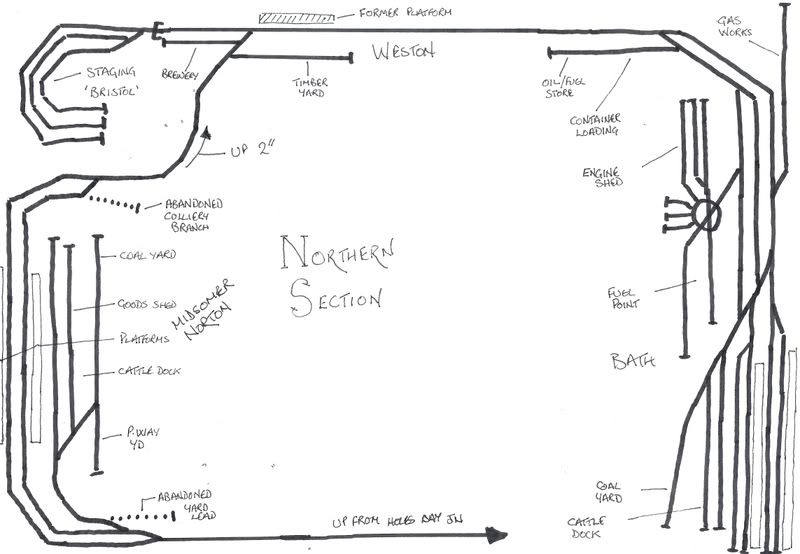 FORMER PLATFORM
GAS
WORKS
STAGING
'BRISTOL'
BREWERY
TIMBER
YARD
WESTON
OIL/FUEL
STORE
CONTAINER
LOADING
UP 2"
ENGINE
SHED
ABANDONED
COLLIERY
BRANCH
NORTHERN
SECTION
COAL YARD
GOODS SHED
MIDSOMER
NORTON
PLATFORMS
CATTLE DOCK
FUEL
POINT
BATH
P.WAY
YD
ABANDONED
YARD
LEAD
COAL
YARD
CATTLE
DOCK
UP FROM HOLES BAY JN